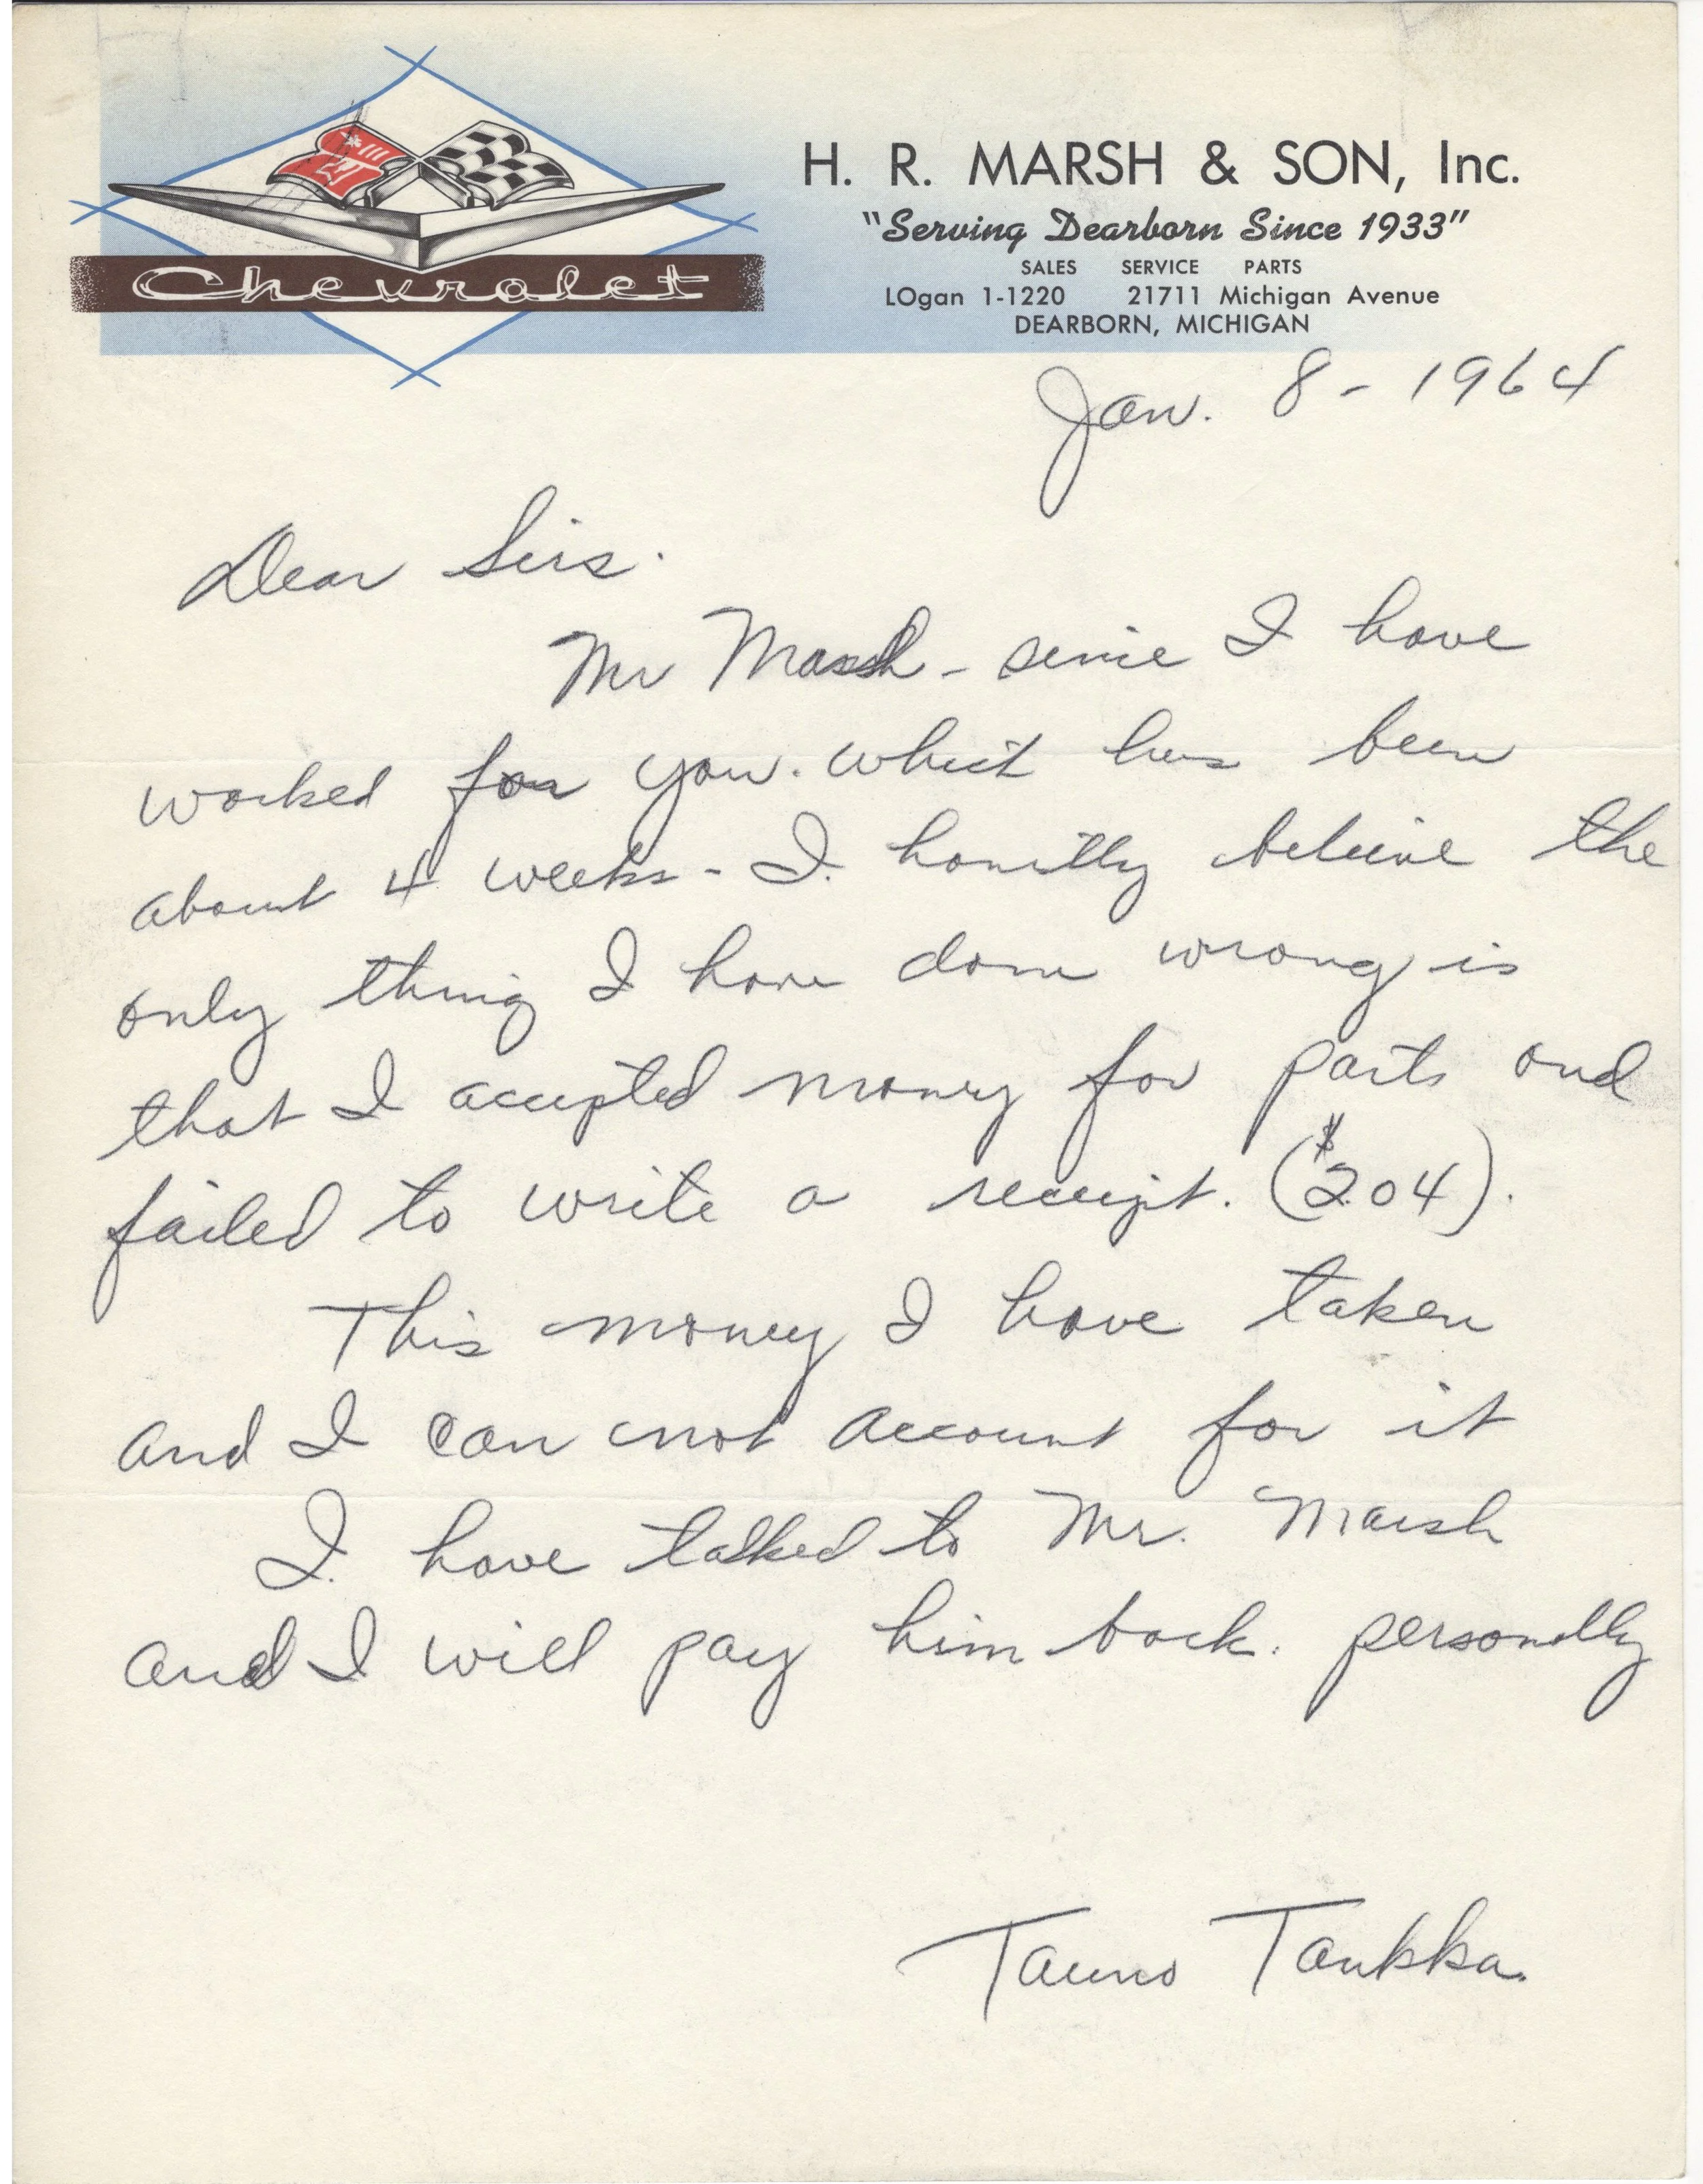 Chevrolet
H. R. MARSH & SON, Inc.
"Serving Dearborn Since 1933"
SALES SERVICE PARTS
LOgan 1-1220 21711 Michigan Avenue
DEARBORN, MICHIGAN
Jan. 8 - 1964
Dear Sirs.
Mr Marsh - sinie I have
worked for you. which has been
about 4 weeks - I honitly beleive the
only thing I have done wrong is
that I accepted money for parts and
failed to write a receipt. ($204).
This money I have taken
and I can not account for it
I have talked to Mr. Marsh
and I will pay him back. personally
Tauno Taukka.